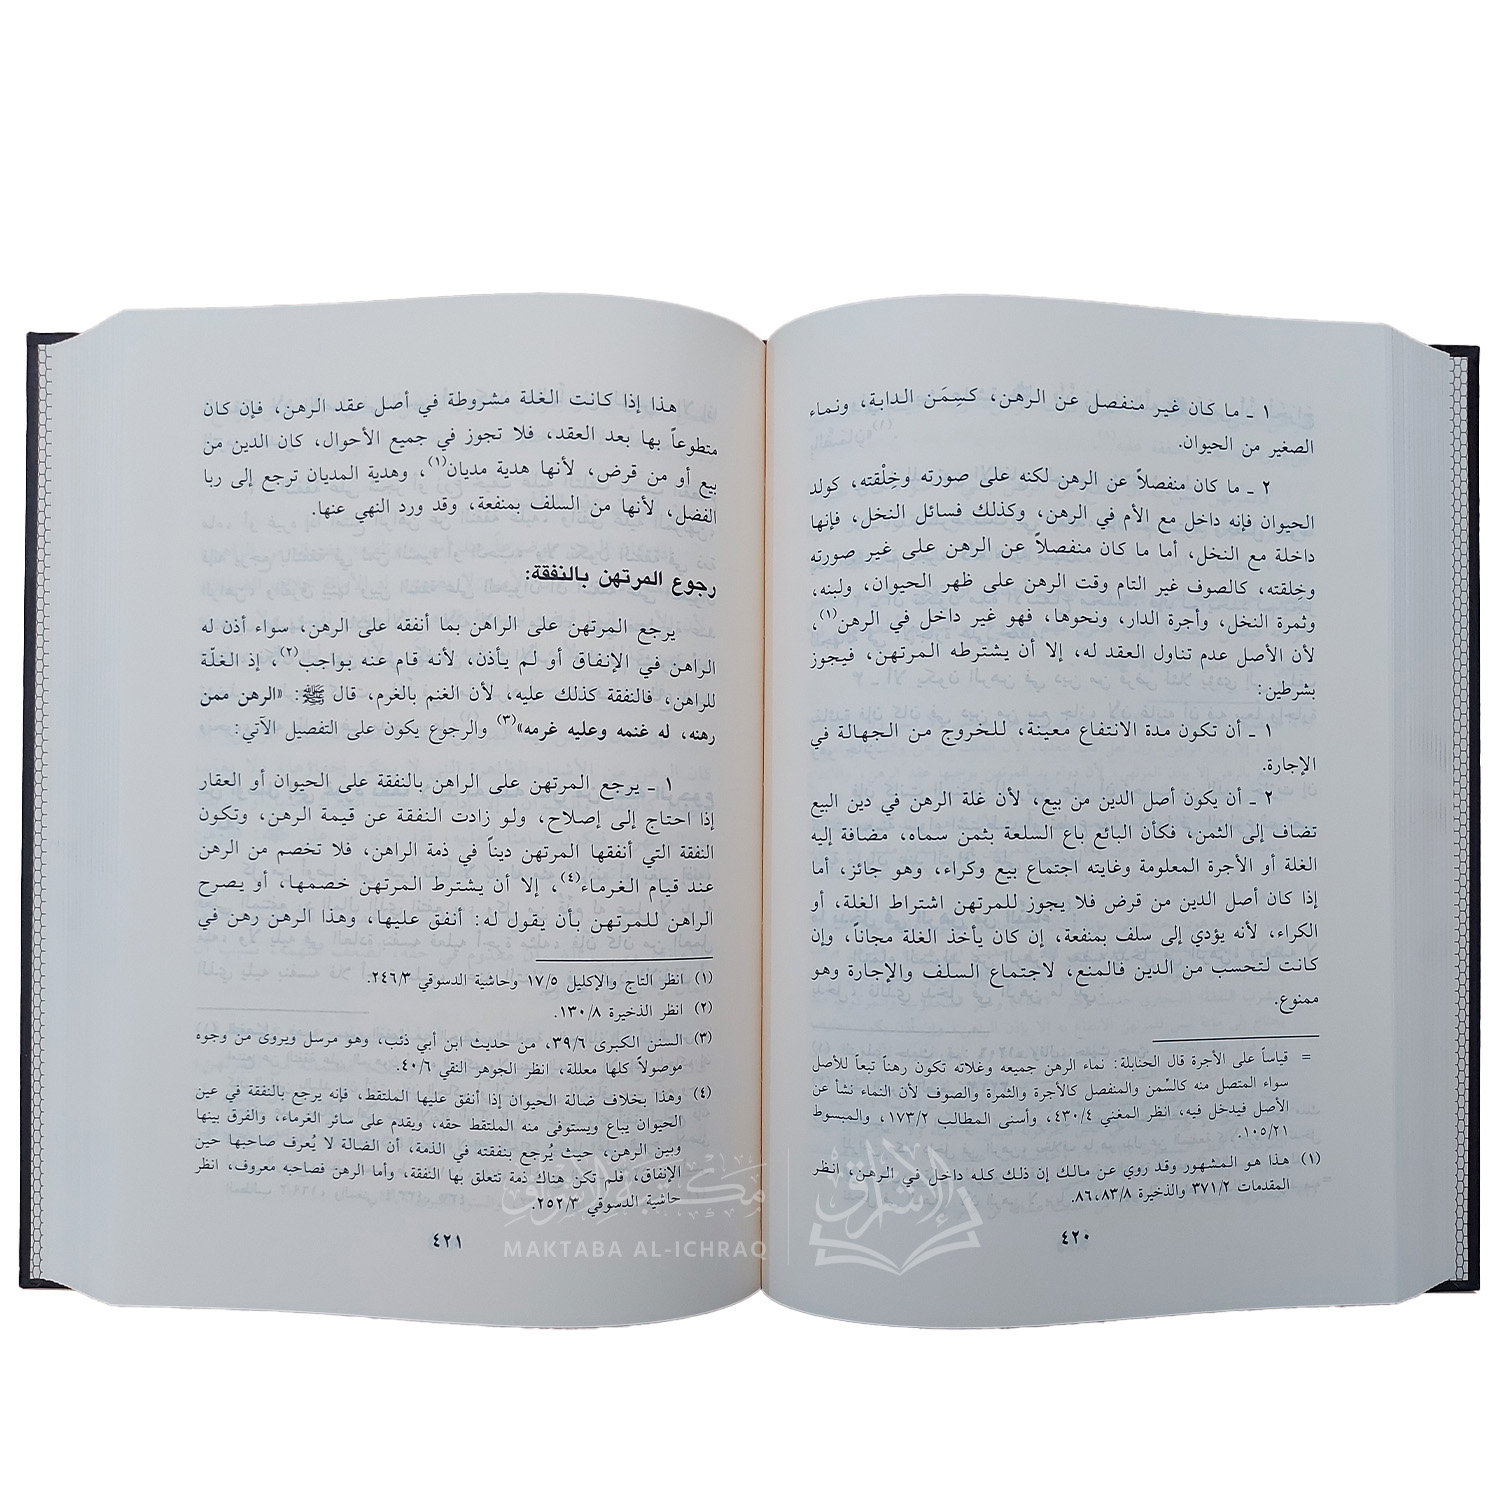 ١ ـ ما كان غير منفصل عن الرهن، كسِمَن الدابة، ونماء
الصغير من الحيوان.
٢ ـ ما كان منفصلاً عن الرهن لكنه على صورته وخِلْقته، كولد
الحيوان فإنه داخل مع الأم في الرهن، وكذلك فسائل النخل، فإنها
داخلة مع النخل، أما ما كان منفصلاً عن الرهن على غير صورته
وخِلقته، كالصوف غير التام وقت الرهن على ظهر الحيوان، ولبنه،
وثمرة النخل، وأجرة الدار، ونحوها، فهو غير داخل في الرهن(١)،
لأن الأصل عدم تناول العقد له، إلا أن يشترطه المرتهن، فيجوز
بشرطين:
١ ـ أن تكون مدة الانتفاع معينة، للخروج من الجهالة في
الإجارة.
٢ ـ أن يكون أصل الدين من بيع، لأن غلة الرهن في دين البيع
تضاف إلى الثمن، فكأن البائع باع السلعة بثمن سماه، مضافة إليه
الغلة أو الأجرة المعلومة وغايته اجتماع بيع وكراء، وهو جائز، أما
إذا كان أصل الدين من قرض فلا يجوز للمرتهن اشتراط الغلة، أو
الكراء، لأنه يؤدي إلى سلف بمنفعة، إن كان يأخذ الغلة مجاناً، وإن
كانت لتحسب من الدين فالمنع، لاجتماع السلف والإجارة وهو
ممنوع.
= قياساً على الأجرة قال الحنابلة: نماء الرهن جميعه وغلاته تكون رهناً تبعاً للأصل
سواء المتصل منه كالسِّمن والمنفصل كالأجرة والثمرة والصوف لأن النماء نشأ عن
الأصل فيدخل فيه، انظر المغني ٤٣٠/٤، وأسنى المطالب ١٧٣/٢، والمبسوط
١٠٥/٢١.
(١) هذا هو المشهور وقد روي عن مالك إن ذلك كله داخل في الرهن، انظر
المقدمات ٣٧١/٢ والذخيرة ٨٣/٨، ٨٦.
٤٢٠
هذا إذا كانت الغلة مشروطة في أصل عقد الرهن، فإن كان
متطوعاً بها بعد العقد، فلا تجوز في جميع الأحوال، كان الدين من
بيع أو من قرض، لأنها هدية مديان(١)، وهدية المديان ترجع إلى ربا
الفضل، لأنها من السلف بمنفعة، وقد ورد النهي عنها.
رجوع المرتهن بالنفقة:
يرجع المرتهن على الراهن بما أنفقه على الرهن، سواء أذن له
الراهن في الإنفاق أو لم يأذن، لأنه قام عنه بواجب(٢)، إذ الغلّة
للراهن، فالنفقة كذلك عليه، لأن الغنم بالغرم، قال ﷺ: «الرهن ممن
رهنه، له غنمه وعليه غرمه»(٣) والرجوع يكون على التفصيل الآتي:
١ ـ يرجع المرتهن على الراهن بالنفقة على الحيوان أو العقار
إذا احتاج إلى إصلاح، ولو زادت النفقة عن قيمة الرهن، وتكون
النفقة التي أنفقها المرتهن ديناً في ذمة الراهن، فلا تخصم من الرهن
عند قيام الغرماء(٤)، إلا أن يشترط المرتهن خصمها، أو يصرح
الراهن للمرتهن بأن يقول له: أنفق عليها، وهذا الرهن رهن في
(١) انظر التاج والإكليل ١٧/٥ وحاشية الدسوقي ٢٤٦/٣.
(٢) انظر الذخيرة ١٣٠/٨.
(٣) السنن الكبرى ٣٩/٦، من حديث ابن أبي ذئب، وهو مرسل ويروى من وجوه
موصولاً كلها معللة، انظر الجوهر النقي ٤٠/٦.
(٤) وهذا بخلاف ضالة الحيوان إذا أنفق عليها الملتقط، فإنه يرجع بالنفقة في عين
الحيوان يباع ويستوفى منه الملتقط حقه، ويقدم على سائر الغرماء، والفرق بينها
وبين الرهن، حيث يُرجع بنفقته في الذمة، أن الضالة لا يُعرف صاحبها حين
الإنفاق، فلم تكن هناك ذمة تتعلق بها النفقة، وأما الرهن فصاحبه معروف، انظر
حاشية الدسوقي ٢٥٢/٣.
٤٢١
مكتبة الإشراق
MAKTABA AL-ICHRAQ
الإشراق